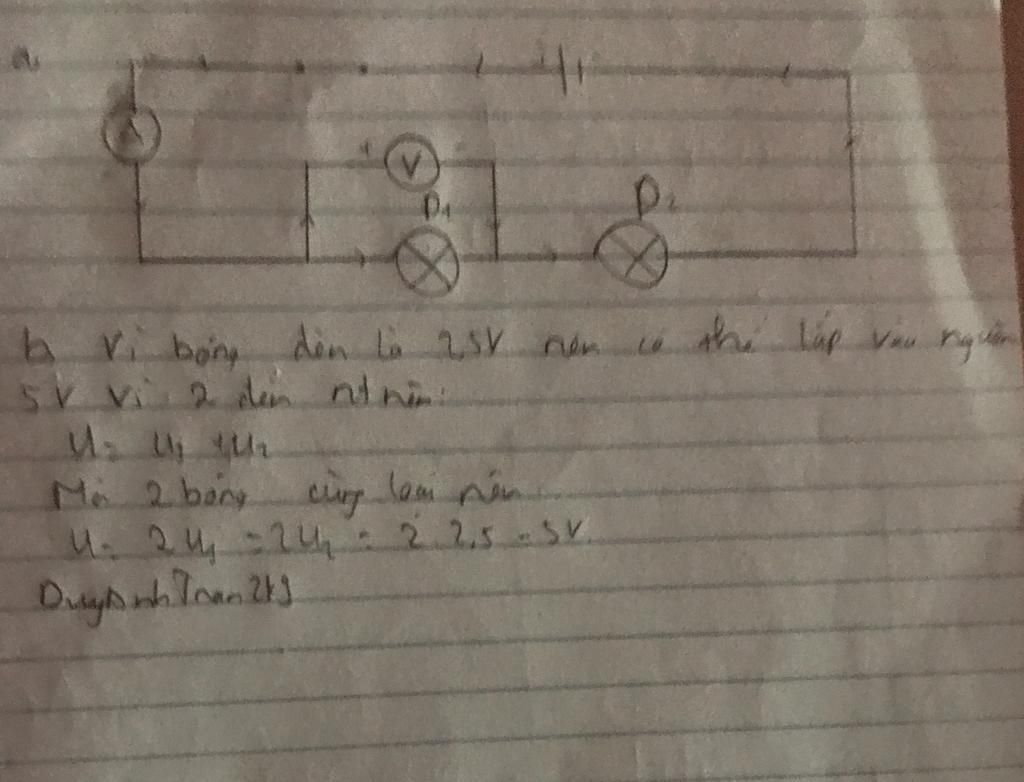 a,
A
+ V
Đ1
Đ2
b Vì bóng đèn là 2,5V nên có thể lắp vào nguồn
5V vì 2 đèn nt nên:
U = U1 + U2
Mà 2 bóng cùng loại nên
U = 2U1 = 2U2 = 2.2,5 = 5V.
DuyAnhTran2k9